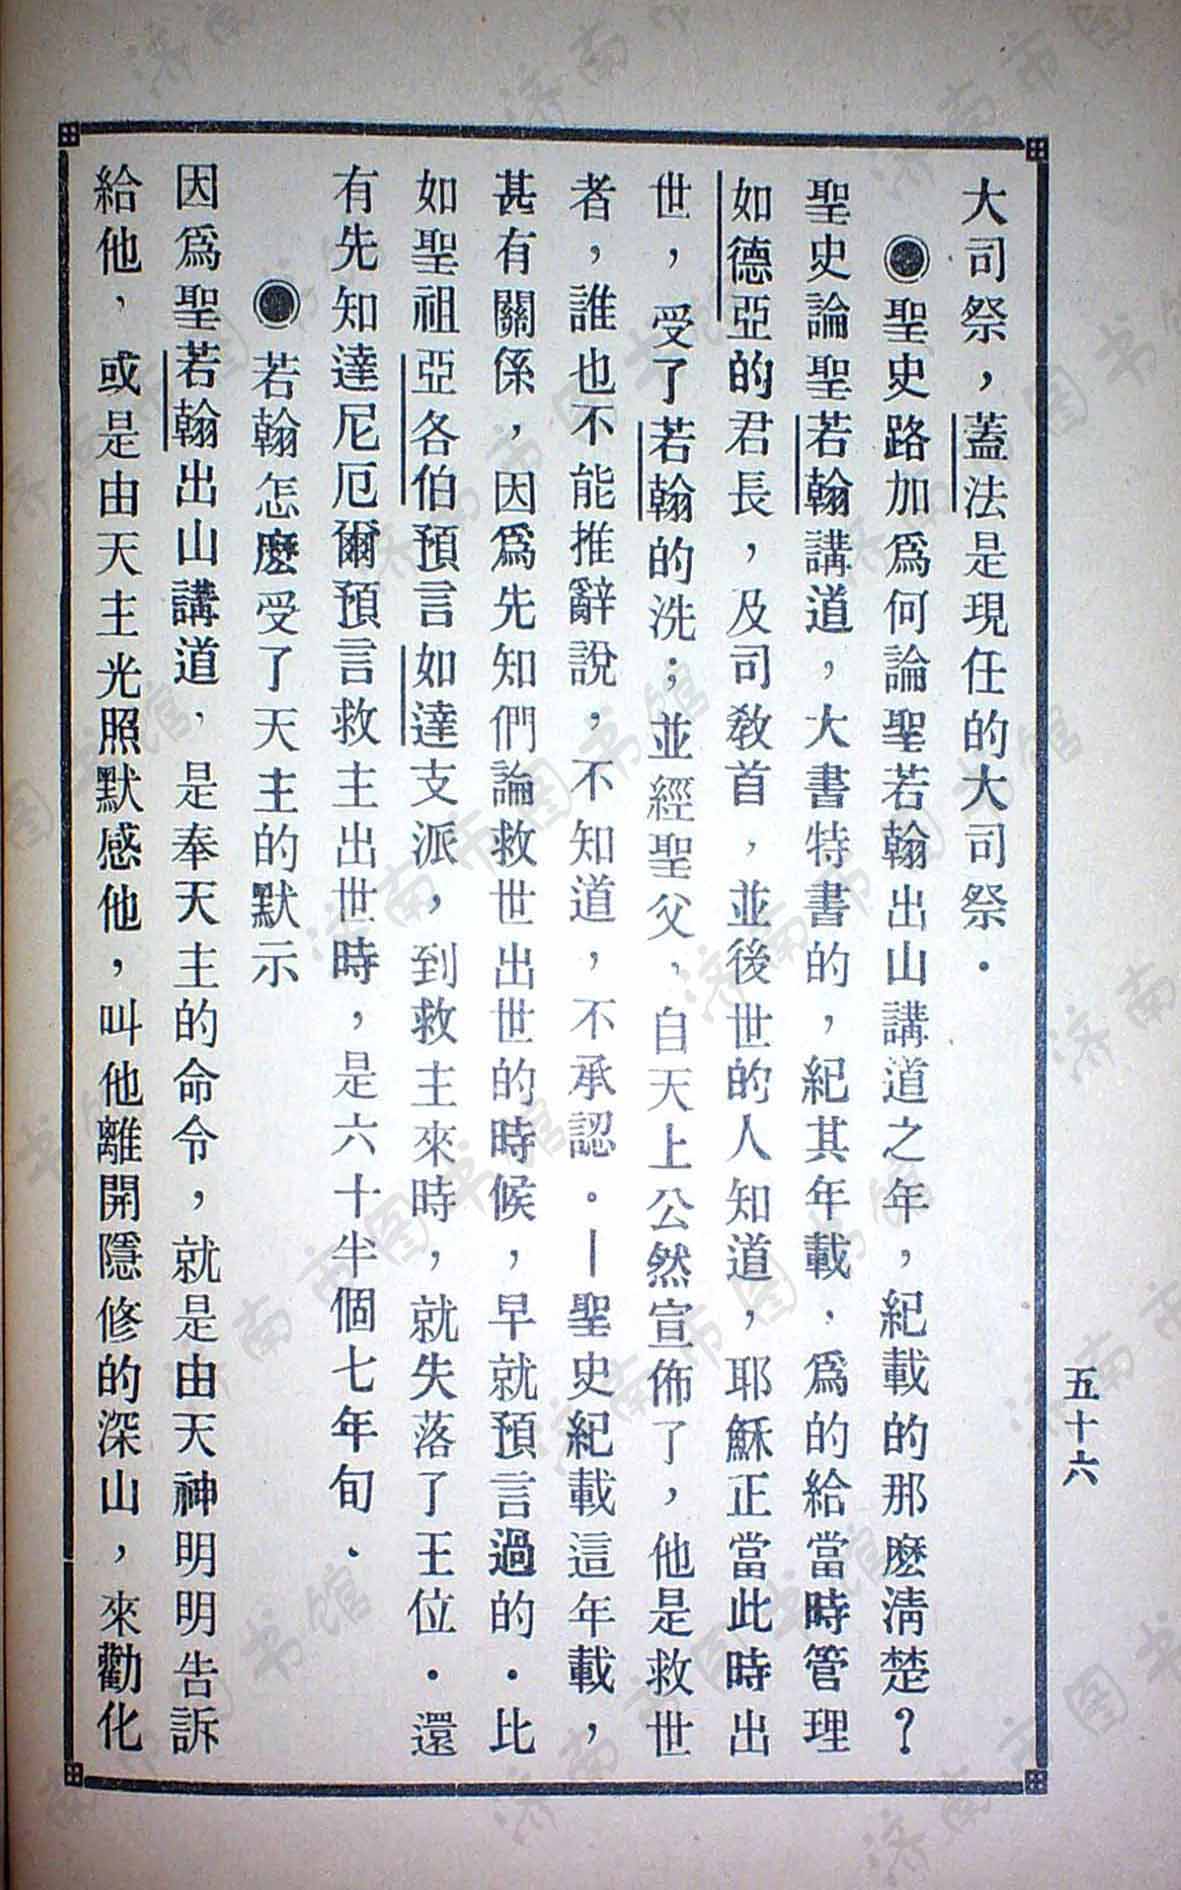 大司祭，蓋法是現任的大司祭．
◉聖史路加爲何論聖若翰出山講道之年，紀載的那麽淸楚？
聖史論聖若翰講道，大書特書的，紀其年載，爲的給當時管理
如德亞的君長，及司敎首，並後世的人知道，耶穌正當此時出
世，受了若翰的洗；並經聖父，自天上公然宣佈了，他是救世
者，誰也不能推辭說，不知道，不承認．—聖史紀載這年載，
甚有關係，因爲先知們論救世出世的時候，早就預言過的．比
如聖祖亞各伯預言如達支派，到救主來時，就失落了王位．還
有先知達尼厄爾預言救主出世時，是六十半個七年旬．
◉若翰怎麽受了天主的默示
因爲聖若翰出山講道，是奉天主的命令，就是由天神明明告訴
給他，或是由天主光照默感他，叫他離開隱修的深山，來勸化
五十六
济南市图书馆